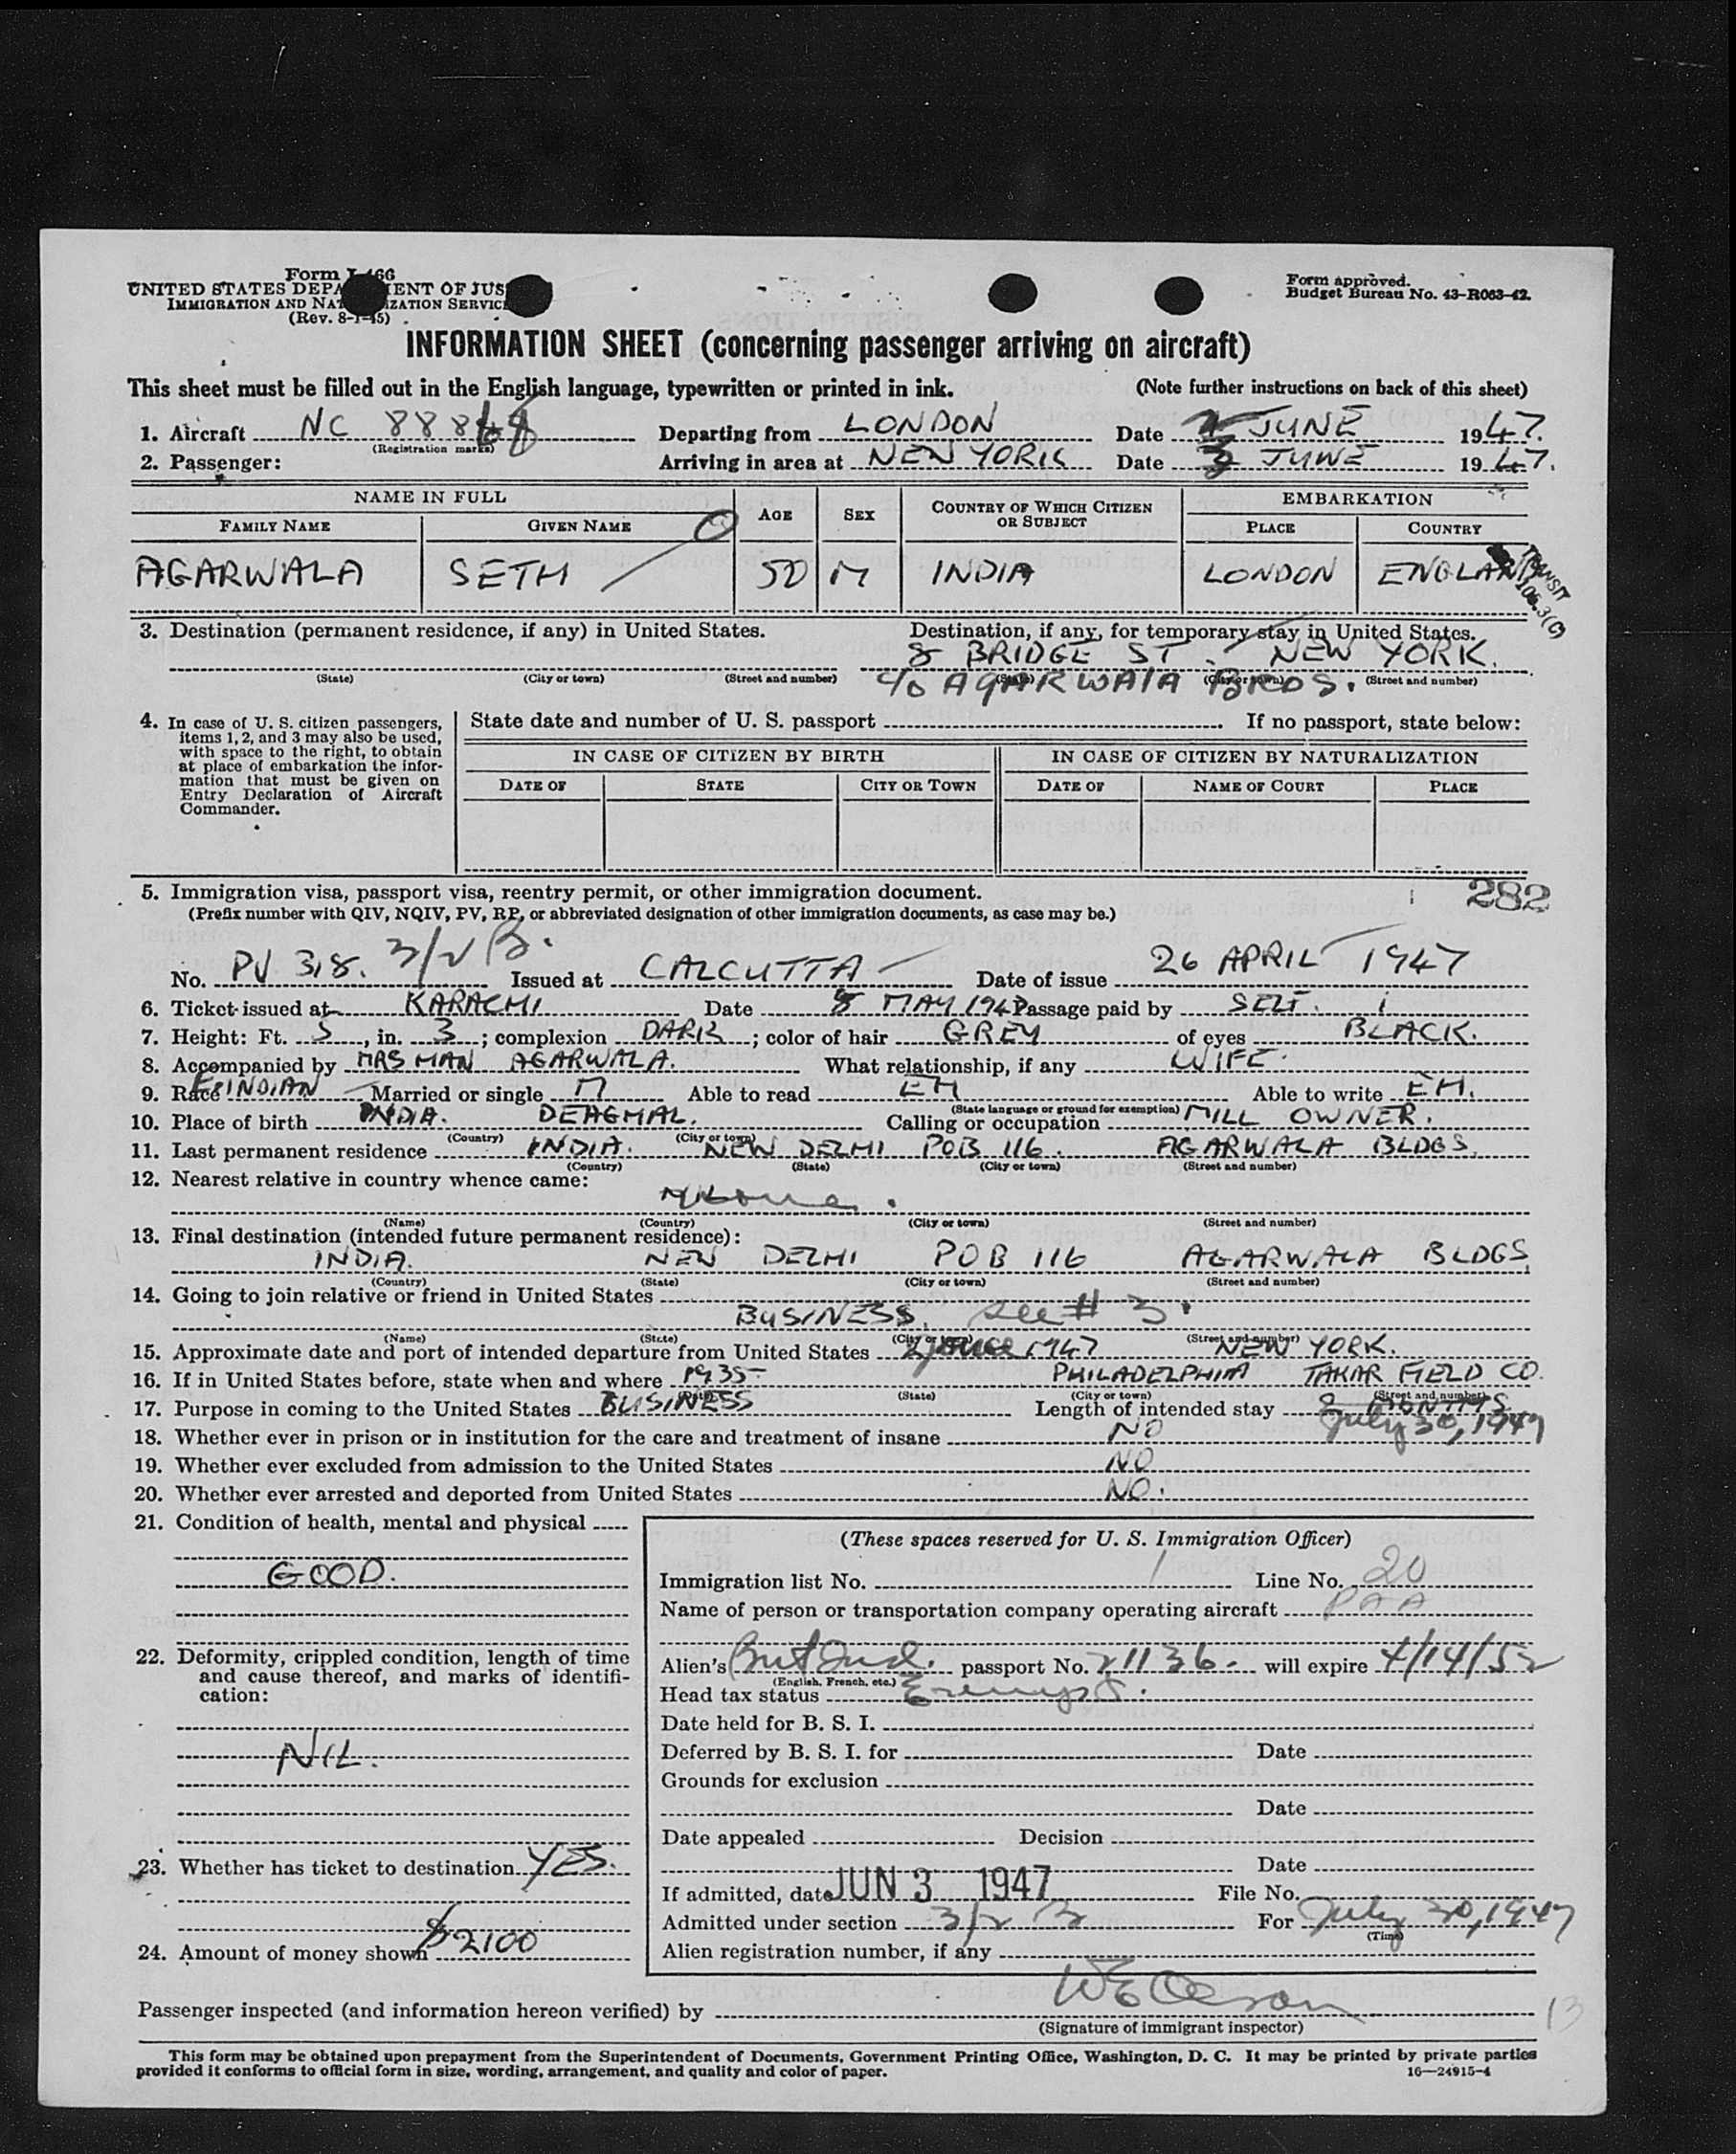 Form I-466
UNITED STATES DEPARTMENT OF JUSTICE
IMMIGRATION AND NATURALIZATION SERVICE
(Rev. 8-1-45)
Form approved.
Budget Bureau No. 43-R063-42.
INFORMATION SHEET (concerning passenger arriving on aircraft)
This sheet must be filled out in the English language, typewritten or printed in ink. (Note further instructions on back of this sheet)
1. Aircraft NC 888 Departing from LONDON Date JUNE 1947.
(Registration marks)
2. Passenger: Arriving in area at NEW YORK Date 3 JUNE 1947.
NAME IN FULL AGE SEX COUNTRY OF WHICH CITIZEN OR SUBJECT EMBARKATION
FAMILY NAME GIVEN NAME PLACE COUNTRY
AGARWALA SETH 50 M INDIA LONDON ENGLAND
TRANSIT
3. Destination (permanent residence, if any) in United States. Destination, if any, for temporary stay in United States.
8 BRIDGE ST. NEW YORK.
(State) (City or town) (Street and number) (State) (City or town) (Street and number)
c/o AGARWALA BROS.
4. In case of U. S. citizen passengers, items 1, 2, and 3 may also be used, with space to the right, to obtain at place of embarkation the information that must be given on Entry Declaration of Aircraft Commander.
State date and number of U. S. passport If no passport, state below:
IN CASE OF CITIZEN BY BIRTH IN CASE OF CITIZEN BY NATURALIZATION
DATE OF STATE CITY OR TOWN DATE OF NAME OF COURT PLACE
5. Immigration visa, passport visa, reentry permit, or other immigration document. 282
(Prefix number with QIV, NQIV, PV, RP, or abbreviated designation of other immigration documents, as case may be.)
No. PV 318. 3/2 B. Issued at CALCUTTA Date of issue 26 APRIL 1947
6. Ticket issued at KARACHI Date 8 MAY 1947 Passage paid by SELF.
7. Height: Ft. 5, in. 3; complexion DARK; color of hair GREY of eyes BLACK.
8. Accompanied by MRS MAN AGARWALA. What relationship, if any WIFE.
9. Race INDIAN Married or single M Able to read EH Able to write EH.
(State language or ground for exemption)
10. Place of birth INDIA. DEAGMAL. Calling or occupation MILL OWNER.
(Country) (City or town)
11. Last permanent residence INDIA. NEW DELHI POB 116. AGARWALA BLDGS.
(Country) (State) (City or town) (Street and number)
12. Nearest relative in country whence came:
None.
(Name) (Country) (City or town) (Street and number)
13. Final destination (intended future permanent residence):
INDIA. NEW DELHI POB 116 AGARWALA BLDGS
(Country) (State) (City or town) (Street and number)
14. Going to join relative or friend in United States
BUSINESS. see # 3.
(Name) (State) (City or town) (Street and number)
15. Approximate date and port of intended departure from United States 1947 NEW YORK.
16. If in United States before, state when and where 1935 PHILADELPHIA TAKAR FIELD CO.
(Date) (State) (City or town) (Street and number)
17. Purpose in coming to the United States BUSINESS Length of intended stay 2 MONTHS
July 30, 1947
18. Whether ever in prison or in institution for the care and treatment of insane NO
19. Whether ever excluded from admission to the United States NO
20. Whether ever arrested and deported from United States NO.
21. Condition of health, mental and physical
GOOD.
22. Deformity, crippled condition, length of time and cause thereof, and marks of identification:
NIL.
23. Whether has ticket to destination YES.
24. Amount of money shown $2100
(These spaces reserved for U. S. Immigration Officer)
Immigration list No. 1 Line No. 20
Name of person or transportation company operating aircraft PAA
Alien's Brit Ind. passport No. 21136. will expire 4/14/52
(English, French, etc.)
Head tax status Exempt.
Date held for B. S. I.
Deferred by B. S. I. for Date
Grounds for exclusion
Date
Date appealed Decision
Date
If admitted, date JUN 3 1947 File No.
Admitted under section 3/2 B For July 30, 1947
(Time)
Alien registration number, if any
Passenger inspected (and information hereon verified) by
(Signature of immigrant inspector)
13
This form may be obtained upon prepayment from the Superintendent of Documents, Government Printing Office, Washington, D. C. It may be printed by private parties
provided it conforms to official form in size, wording, arrangement, and quality and color of paper. 16—24915-4